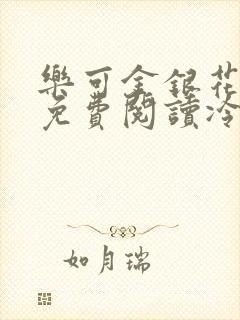 樂可金銀花
免費閱讀冷
如月瑞